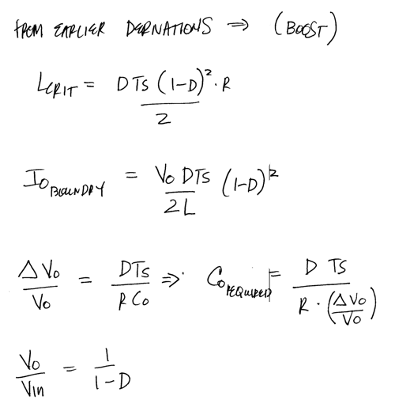 FROM EARLIER DERIVATIONS ⇒ (BOOST)
L_CRIT = D Ts (1-D)² · R / 2
I_O BOUNDRY = Vo D Ts / 2L (1-D)²
ΔVo / Vo = D Ts / R Co ⇒ Co REQUIRED = D Ts / R · (ΔVo / Vo)
Vo / Vin = 1 / 1-D